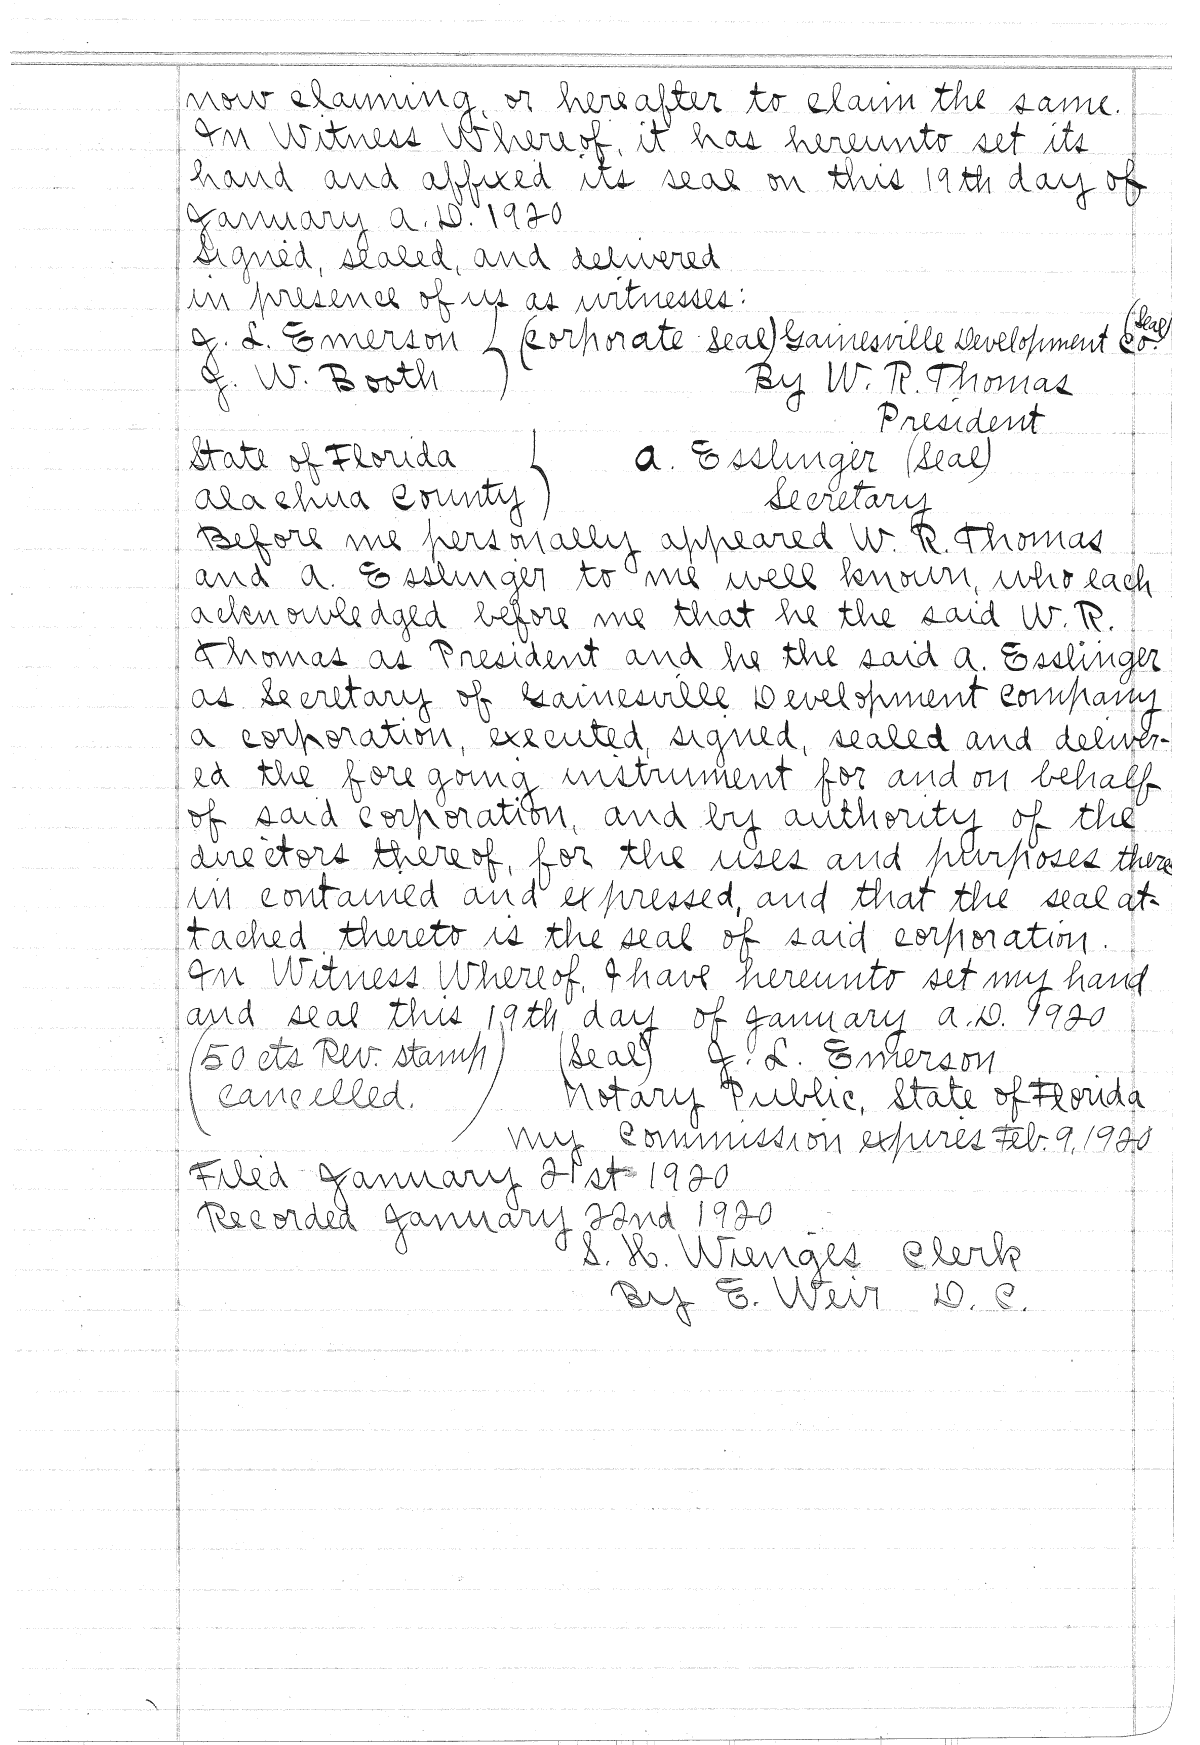 now claiming, or hereafter to claim the same.
In Witness Whereof, it has hereunto set its
hand and affixed its seal on this 19th day of
January A.D. 1920
Signed, sealed, and delivered
in presence of us as witnesses:
J. L. Emerson (Corporate Seal) Gainesville Development Co. (Seal)
J. W. Booth By W. R. Thomas
President
State of Florida A. Esslinger (Seal)
Alachua County Secretary
Before me personally appeared W. R. Thomas
and A. Esslinger to me well known, who each
acknowledged before me that he the said W. R.
Thomas as President and he the said A. Esslinger
as Secretary of Gainesville Development Company
a corporation, executed, signed, sealed and deliver-
ed the foregoing instrument for and on behalf
of said corporation, and by authority of the
directors thereof, for the uses and purposes there
in contained and expressed, and that the seal at-
tached thereto is the seal of said corporation.
In Witness Whereof, I have hereunto set my hand
and seal this 19th day of January A.D. 1920
(50 cts Rev. stamp (Seal) J. L. Emerson
cancelled.) Notary Public, State of Florida
My Commission expires Feb. 9, 1920
Filed January 21st 1920
Recorded January 22nd 1920
S. H. Wienges Clerk
By E. Weir D. C.